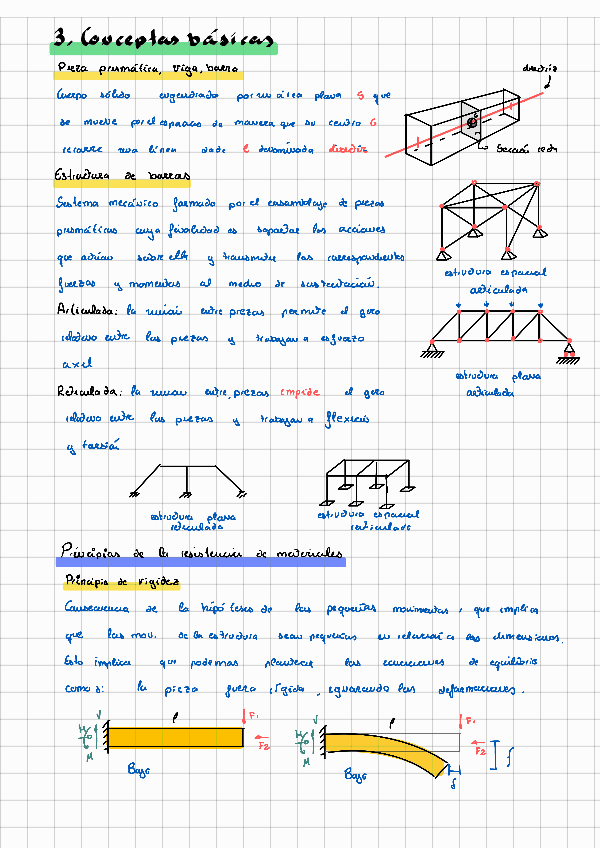 3. Conceptos básicos
Pieza prismática, viga, barra
directriz
Cuerpo sólido engendrado por un área plana S que
se mueve por el espacio de manera que su centro G
recorre una línea dada l denominada directriz
G
Sección recta
Estructura de barras
Sistema mecánico formado por el ensamblaje de piezas
prismáticas cuya finalidad es soportar las acciones
que actúan sobre ella y transmitir las correspondientes
fuerzas y momentos al medio de sustentación.
estructura espacial
articulada
Articulada: la unión entre piezas permite el giro
relativo entre las piezas y trabajan a esfuerzo
axil
estructura plana
articulada
Reticulada: la unión entre piezas impide el giro
relativo entre las piezas y trabajan a flexión
y torsión
estructura plana
reticulada
estructura espacial
reticulada
Principios de la resistencia de materiales
Principio de rigidez
Consecuencia de la hipótesis de los pequeños movimientos, que implica
que los mov. de la estructura sean pequeños en relación a las dimensiones.
Esto implica que podemos plantear las ecuaciones de equilibrio
como si la pieza fuera rígida, ignorando las deformaciones.
V
H
M
l
F1
F2
Base
V
H
M
l
F1
F2
f
δ
Base